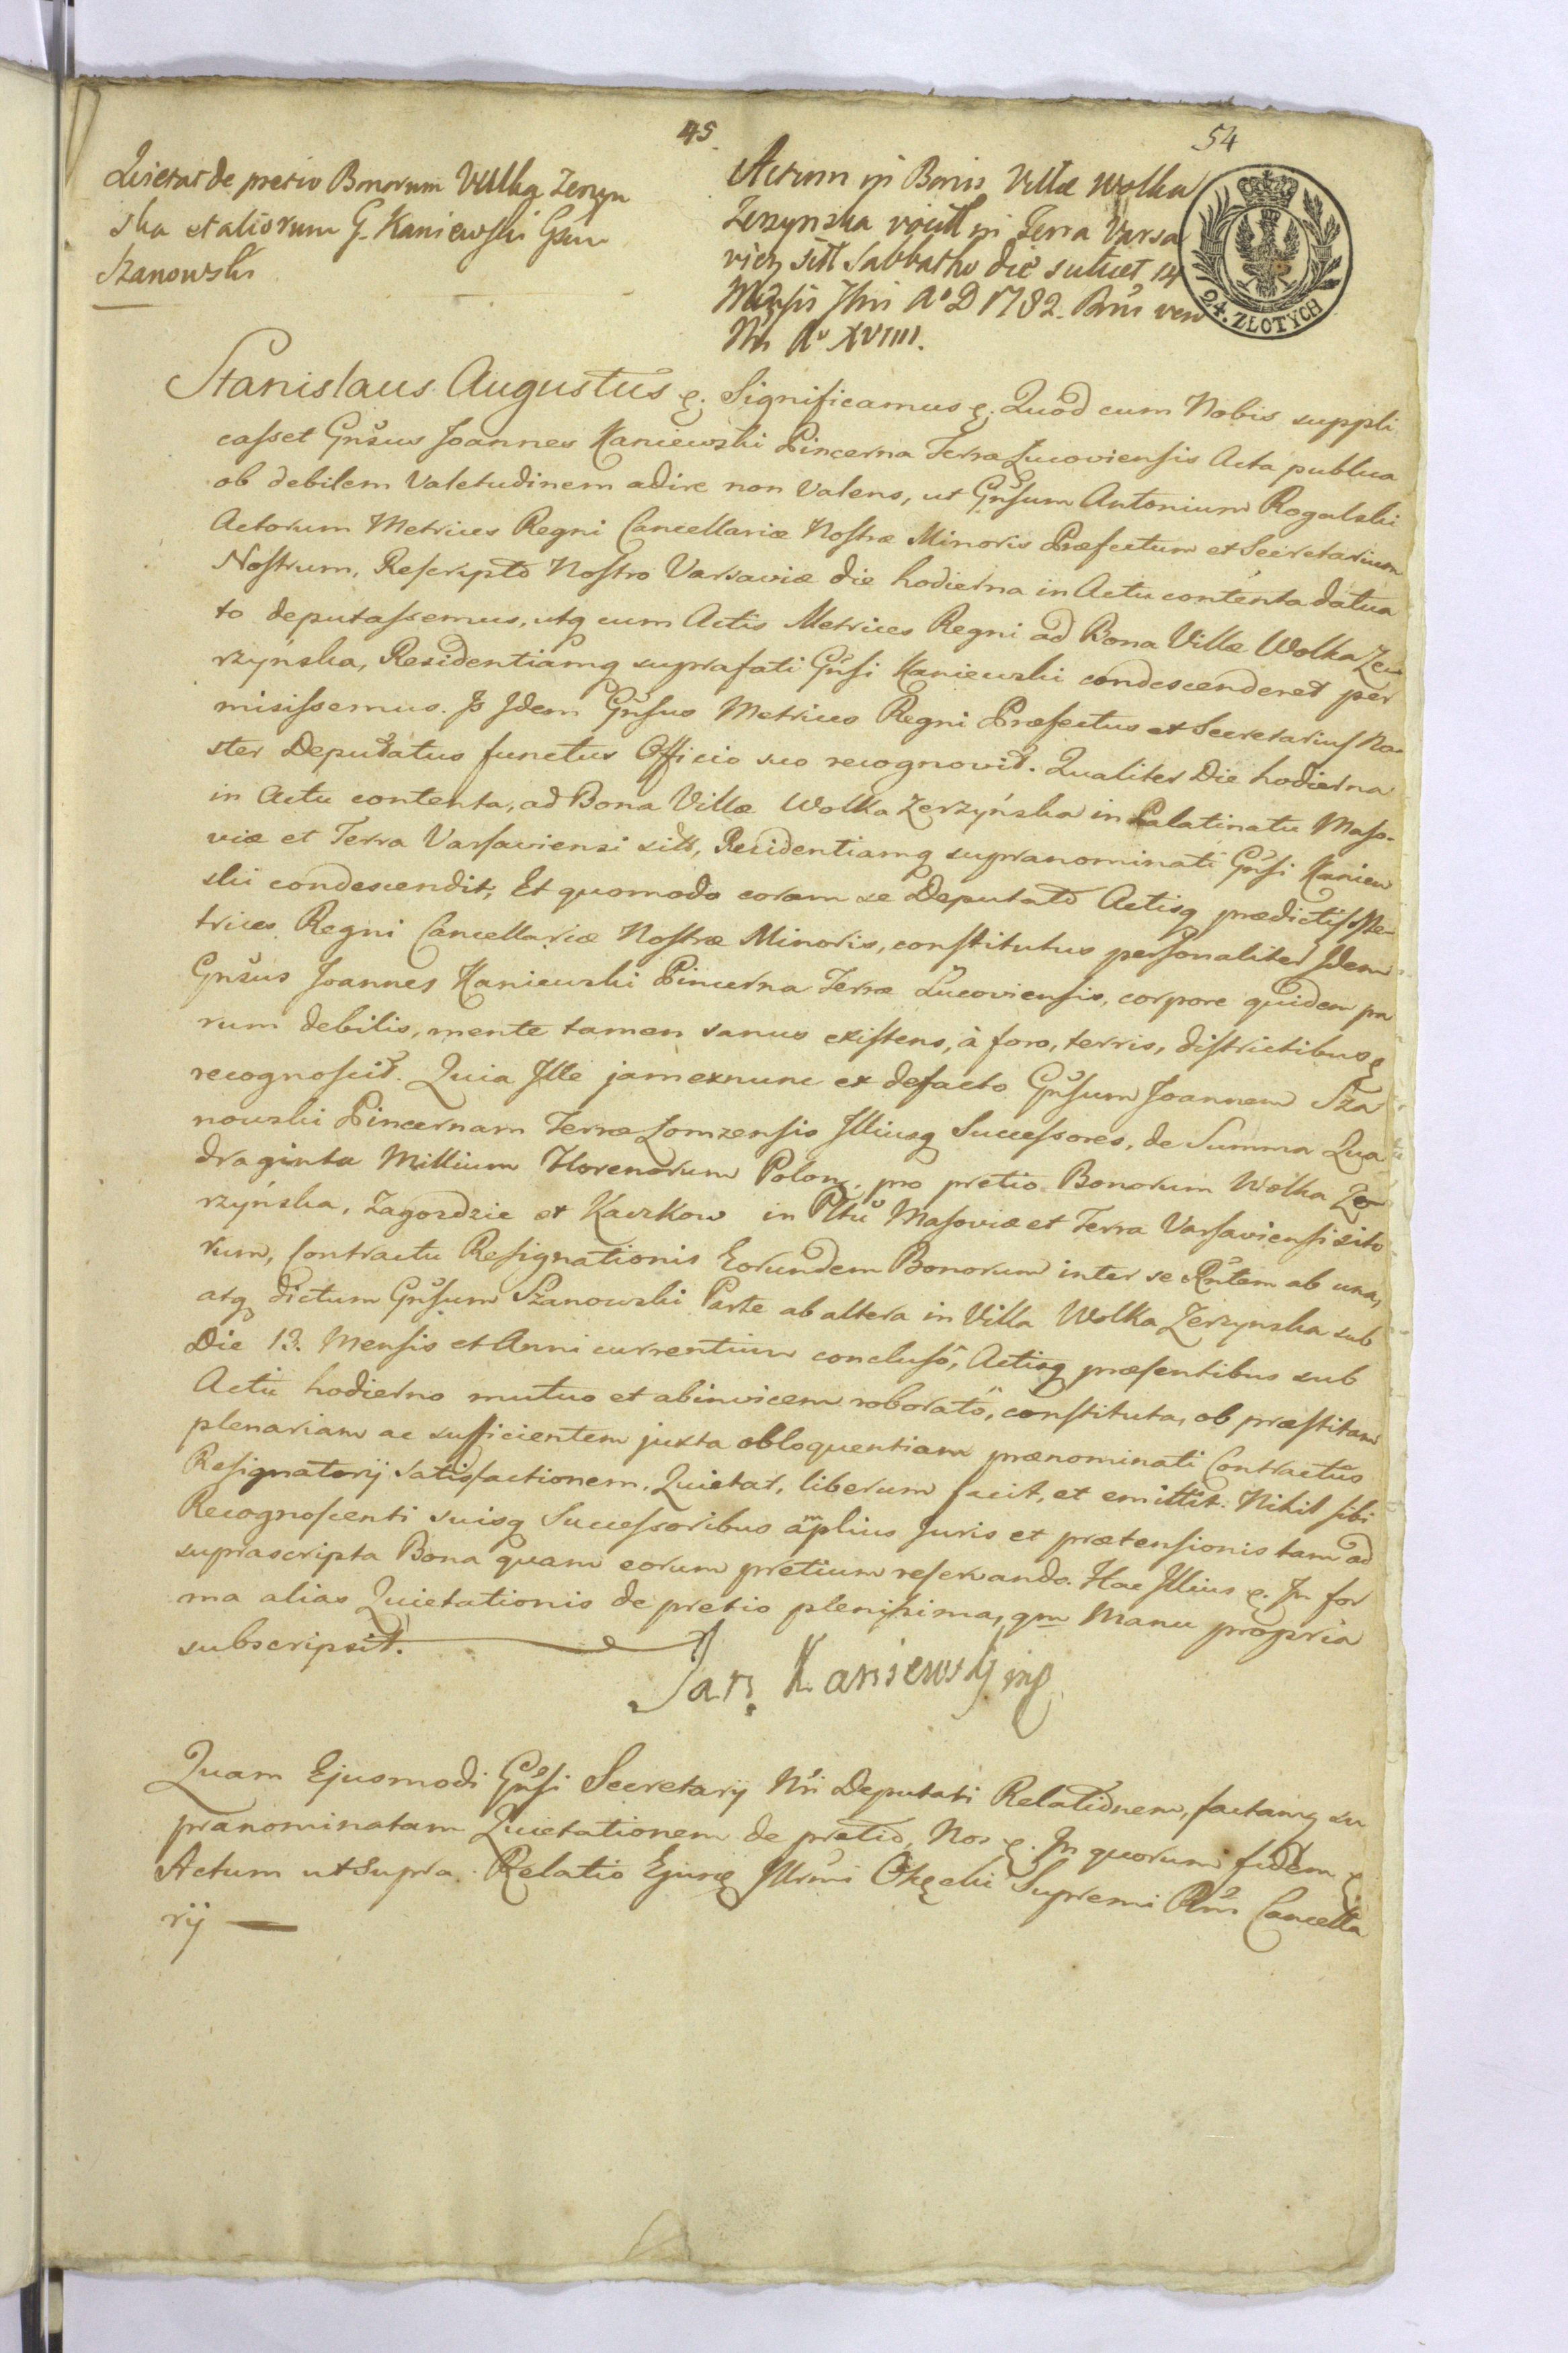 45
54
Quietat de pretio Bonorum Wulka Zerzyn
ska et aliorum G. Kaniewski Gsu
Szanowski
Actum in Bonis Villæ Wolka
Zerzynska in Terra Varsa
vien Sabbatho die 14
Mensis A° D 1782.
Nri A° XVIIII.
24. ZŁOTYCH
Stanislaus Augustus &. Significamus &. Quod cum Nobis suppli
casset Gnsus Joannes Kaniewski Pincerna Terræ Lucoviensis Acta publica
ob debilem Valetudinem adire non Valens, ut Gnsum Antonium Rogalski
Actorum Metrices Regni Cancellariæ Nostræ Minoris Præfectum et Secretarium
Nostrum, Rescripto Nostro Varsaviæ die hodierna in Actu contenta datua
to deputassemus, utq cum Actis Metrices Regni ad Bona Villæ Wolka Zer
rzyńska, Residentiamq suprafati Gnsi Kaniewski condescenderet per
misissemus. Is Idem Gnsus Metrices Regni Præfectus et Secretarius No-
ster Deputatus functus Officio suo recognovit. Qualiter Die hodierna
in Actu contenta, ad Bona Villæ Wolka Zerzyńska in Palatinatu Maso-
viæ et Terra Varsaviensi sitt, Residentiamq supranominati Gnsi Kaniew
ski condescendit, Et quomodo coram se Deputato Actisq prædictis Me-
trices Regni Cancellariæ Nostræ Minoris, constitutus personaliter Idem
Gnsus Joannes Kaniewski Pincerna Terræ Lucoviensis, corpore quidem pa
rum debilis, mente tamen sanus existens, à foro, terris, districtibus &
recognoscit. Quia Ille jam exnunc et defacto Gnsum Joannem Sza
nowski Pincernam Terræ Lomzensis Illiusq Successores, de Summa Qua
draginta Millium Florenorum Polon, pro pretio Bonorum Wolka Ze
rzyńska, Zagozdzie et Kaczkow in Pltu Masoviæ et Terra Varsaviensi sito
rum, Contractu Resignationis Eorundem Bonorum inter se Rntem ab una,
atq dictum Gnsum Szanowski Parte ab altera in Villa Wolka Zerzynska sub
Die 13. Mensis et Anni currentium concluso, Actisq præsentibus sub
Actu hodierno mutuo et abinvicem roborato, constituta, ob præstitam
plenariam ac sufficientem juxta obloquentiam prænominati Contractus
Resignatorij satisfactionem, Quietat, liberum facit, et emittit. Nihil sibi
Recognoscenti suisq Successoribus amplius Juris et prætensionis tam ad
suprascripta Bona quam eorum pretium reservando. Hac Illius &. In for
ma alias Quietationis de pretio plenissima, qm Manu propria
subscripsit.
Jan Kaniewski mp
Quam Ejusmodi Gnsi Secretarij Nri Deputati Relationem, factamq su
pranominatam Quietationem de pretio, Nos &. In quorum fidem &
Actum ut Supra. Relatio Ejusd Illrmi Okęcki Supremi Rni Cancella
rij